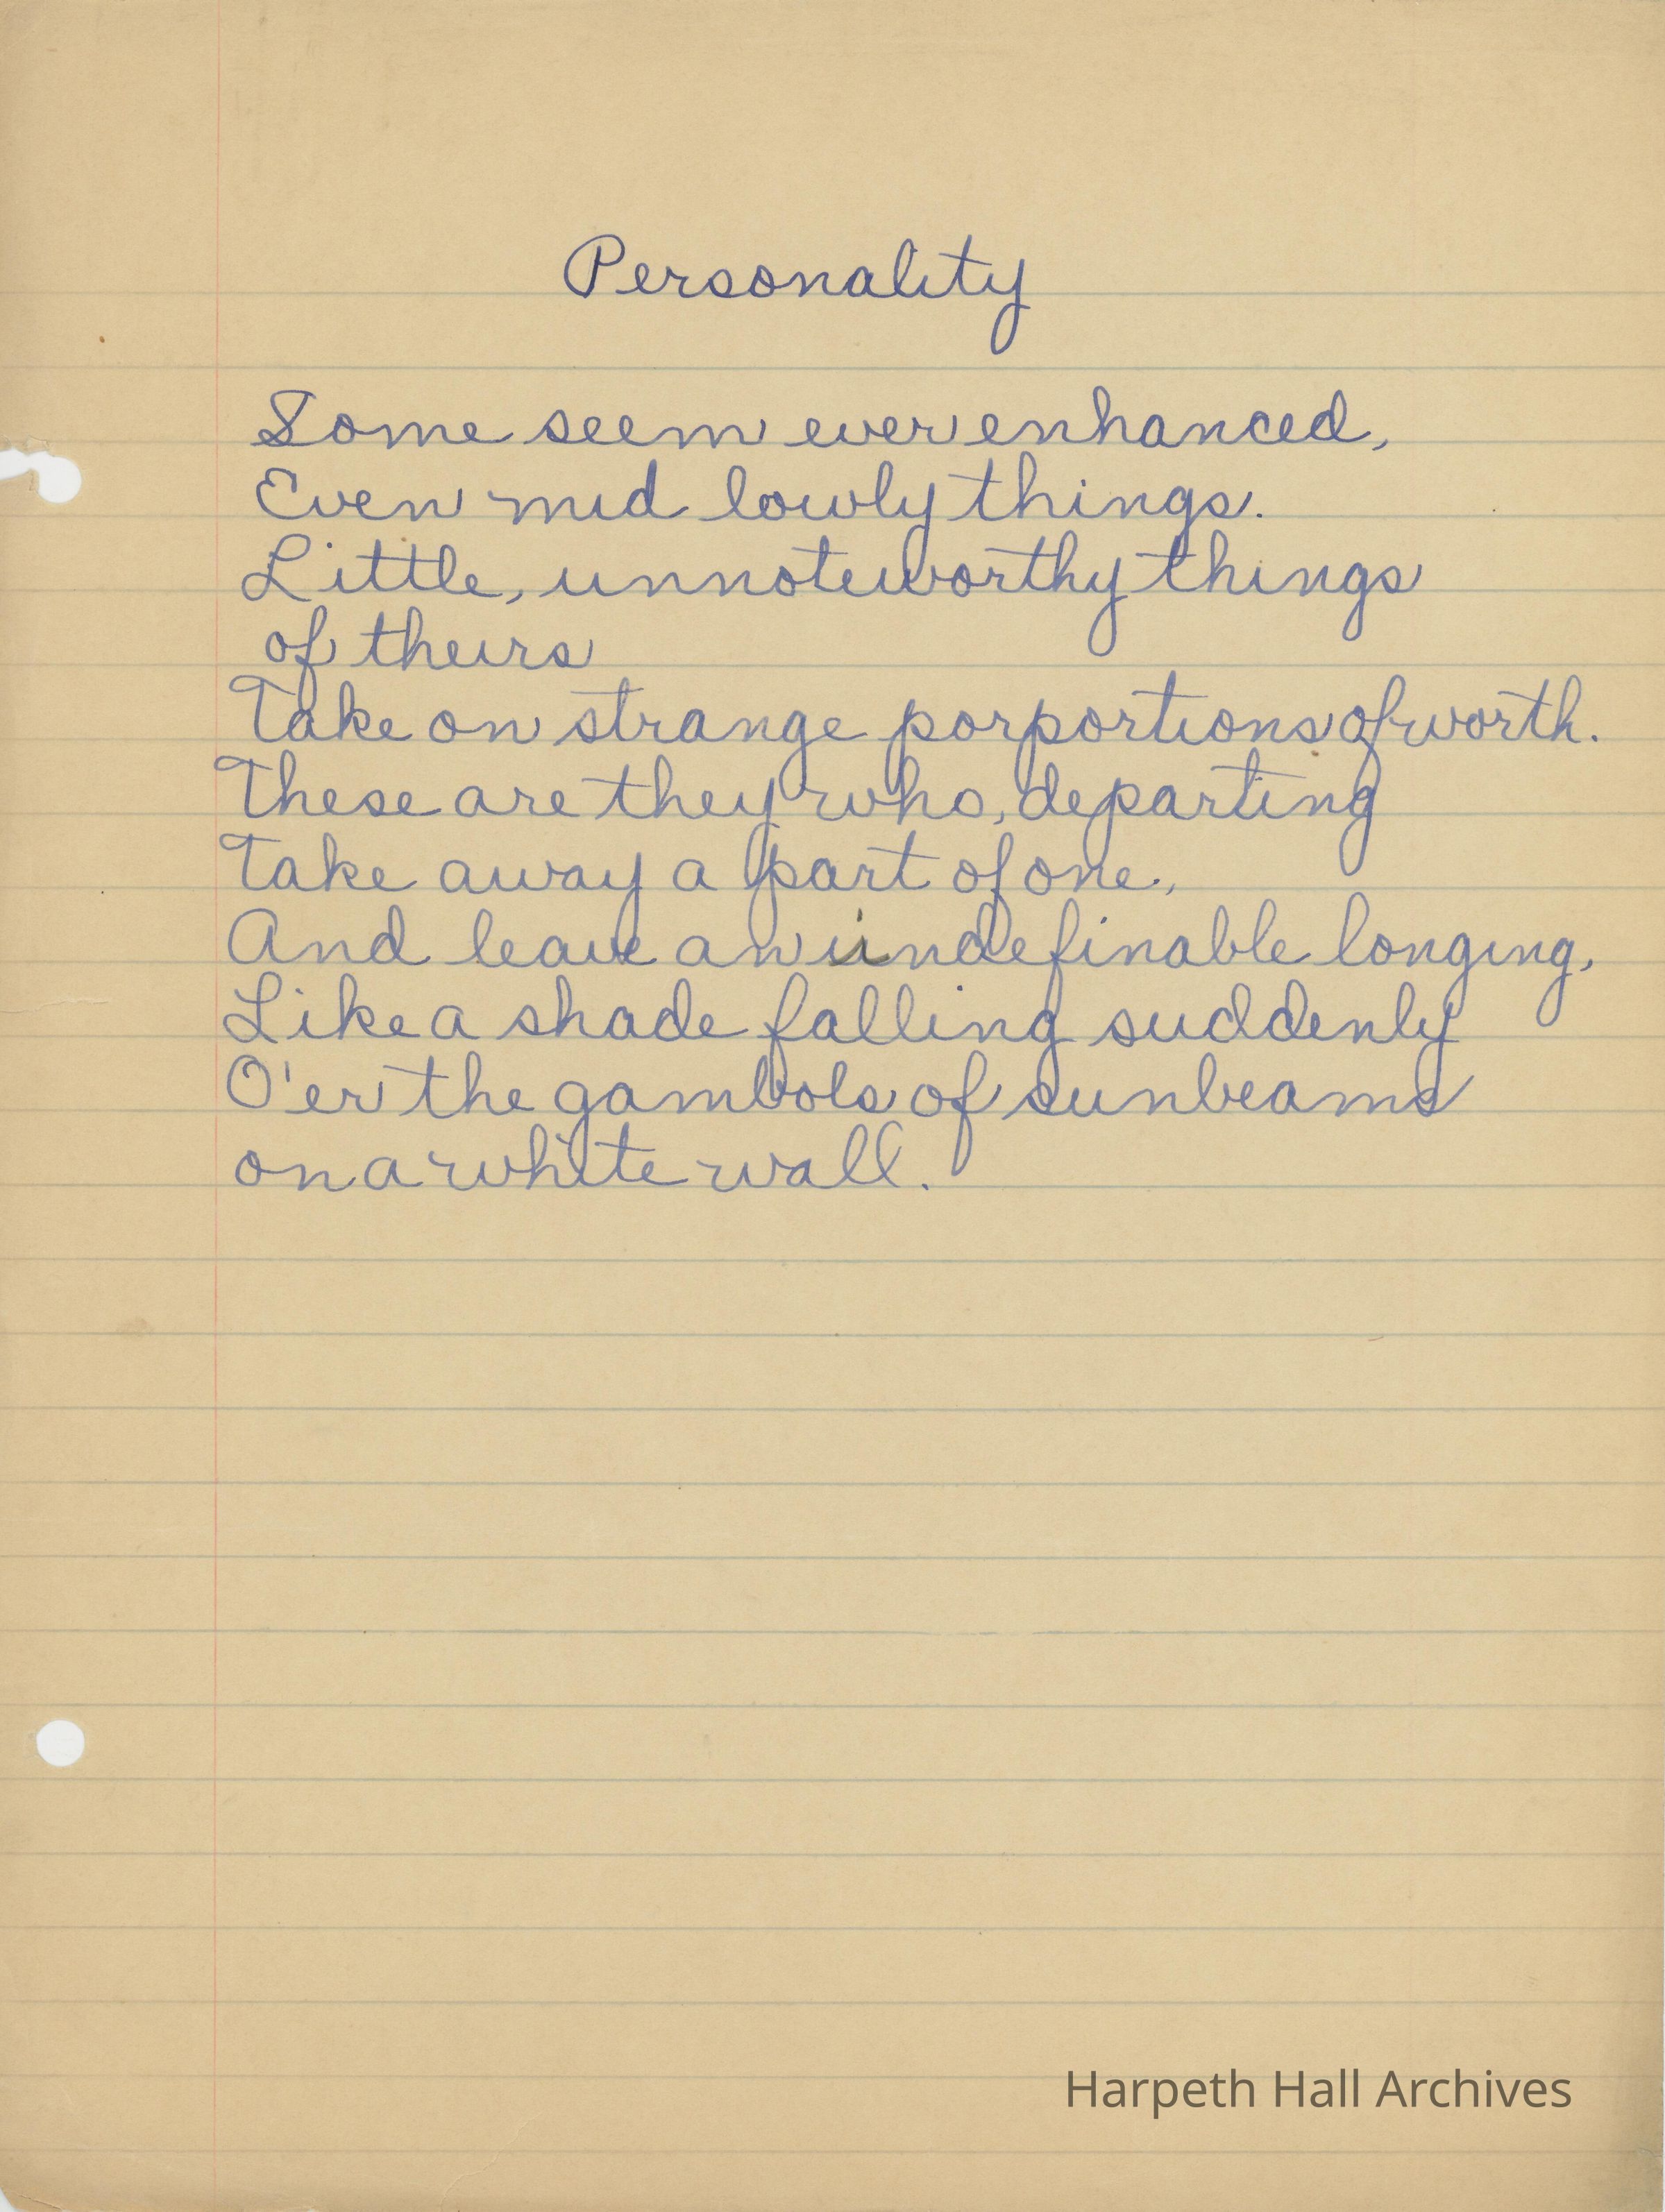 Personality
Some seem ever enhanced,
Even mid lowly things.
Little, unnoteworthy things
of theirs
Take on strange porportions of worth.
These are they who, departing
Take away a part of one,
And leave an indefinable longing,
Like a shade falling suddenly
O'er the gambols of sunbeams
on a white wall.
Harpeth Hall Archives